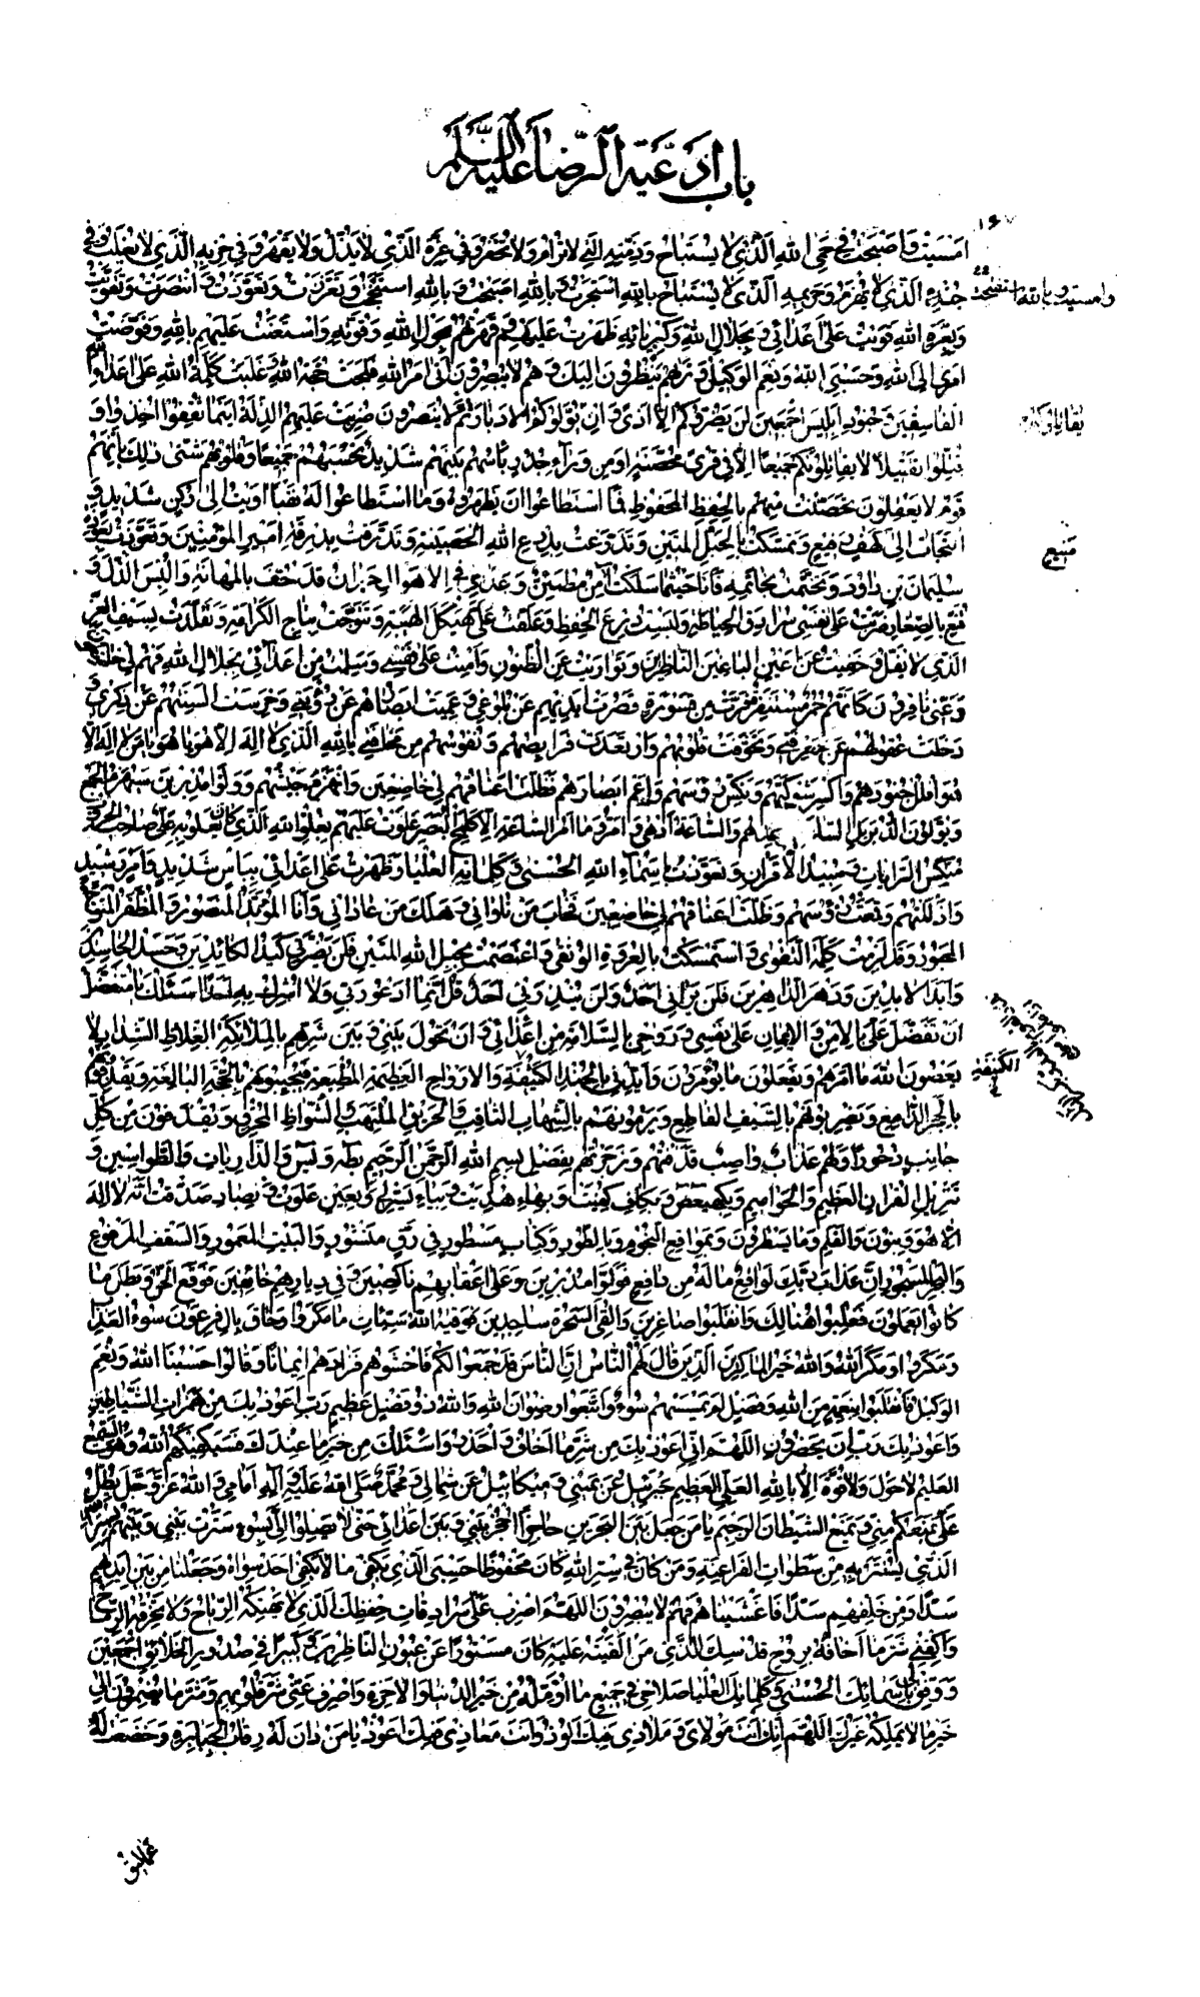 باب ادعية الرضا عليه السلم
١٤٧
امسيت واصبحت في حمى الله الذي لا يستباح وذمته التي لا ترام ولا تخفر وفي عزة الذي لا يذل ولا يقهر وفي حزبه الذي لا يغلب وفي
جنده الذي لا يهزم وحريمه الذي لا يستباح بالله استجرت وبالله اصبحت وبالله استنجحت وتعززت وتعوذت وانتصرت وتقويت
وامسيت وبالله استفتحت
وبعزة الله قويت على اعدائي وبجلال الله وكبريائه ظهرت عليهم وقهرتهم بحول الله وقوته واستعنت عليهم بالله وفوضت
امري الى الله وحسبي الله ونعم الوكيل وتراهم ينظرون اليك وهم لا يبصرون اتى امر الله فلجت حجة الله وغلبت كلمة الله على اعداء الله
الفاسقين وجنود ابليس اجمعين لن يضروكم الا اذى وان يقاتلوكم يولوكم الادبار ثم لا ينصرون ضربت عليهم الذلة اينما ثقفوا اخذوا و
قتلوا تقتيلا لا يقاتلونكم جميعا الا في قرى محصنة او من وراء جدر باسهم بينهم شديد تحسبهم جميعا وقلوبهم شتى ذلك بانهم
قوم لا يعقلون تحصنت منهم بالحفظ المحفوظ فما استطاعوا ان يظهروه وما استطاعوا له نقبا اويت الى ركن شديد و
التجات الى كهف منيع وتمسكت بالحبل المتين وتدرعت بدرع الله الحصينة وتدرقت بدرقة امير المؤمنين وتعوذت بعوذة
منيع
سليمان بن داود وتختمت بخاتمه فانا حيثما سلكت آمن مطمئن وعدوي في الاهوال حيران قد حف بالمهانة والبس الذل و
قمع بالصغار ضربت على نفسي سرادق الحياطة ولبست درع الحفظ وعلقت علي هيكل الهيبة وتتوجت بتاج الكرامة وتقلدت بسيف العز
الذي لا يفل وخفيت عن اعين الباغين الناظرين وتواريت عن الظنون وامنت على نفسي وسلمت من اعدائي بجلال الله فهم لي خاضعون
وعني نافرون كانهم حمر مستنفرة فرت من قسورة قصرت ايديهم عن بلوغي وعميت ابصارهم عن رؤيتي وخرست السنتهم عن ذكري و
ذهلت عقولهم عن معرفتي وتخوفت قلوبهم وارتعدت فرائصهم ونفوسهم من مخافتي بالله الذي لا اله الا هو يا هو يا من لا اله الا
هو افلل جنودهم واكسر شوكتهم ونكس رؤسهم واعم ابصارهم فظلت اعناقهم لي خاضعين وانهزم جيشهم وولوا مدبرين سيهزم الجمع
ويولون الدبر بل الساعة موعدهم والساعة ادهى وامر وما امر الساعة الا كلمح البصر علوت عليهم بعلو الله الذي كان يعلو به علي صاحب الحروب
منكس الرايات ومبيد الاقران وتعوذت باسماء الله الحسنى وكلماته العليا وظهرت على اعدائي بباس شديد وامر رشيد
واذللتهم وقمعت رؤسهم وظلت اعناقهم لي خاضعين فخاب من ناواني وهلك من عاداني وانا المؤيد المنصور والمظفر المتوج
المحبور وقد لزمت كلمة التقوى واستمسكت بالعروة الوثقى واعتصمت بحبل الله المتين فلن يضرني كيد الكائدين وحسد الحاسدين
وابدا الابدين ودهر الداهرين فلن يراني احد ولن يبدرني احد قل انما ادعو ربي ولا اشرك به احدا اسئلك يا متفضل
ان تفضل علي بالامن والايمان على نفسي وروحي بالسلامة من اعدائي وان تحول بيني وبين شرهم بالملائكة الغلاظ الشداد لا
يعصون الله ما امرهم ويفعلون ما يؤمرون وايدني بالجند الكثيفة والارواح العظيمة المطيعة فيجيبوهم بالحجة البالغة ويقذفونهم
الكثيفة
بالحجر الدامغ ويضربونهم بالسيف القاطع ويرمونهم بالشهاب الثاقب والحريق الملتهب والشواظ المحرق ويقذفون من كل
جانب دحورا ولهم عذاب واصب قذفتهم وزجرتهم بفضل بسم الله الرحمن الرحيم بطه ويس والذاريات والطواسين و
تنزيل القران العظيم والحواميم وبكهيعص وبكاف كفيت وبهاء هديت وبياء يسر لي وبعين علوت وبصاد صدقت انه لا اله
الا هو وبنون والقلم وما يسطرون وبمواقع النجوم وبالطور وكتاب مسطور في رق منشور والبيت المعمور والسقف المرفوع
والبحر المسجور ان عذاب ربك لواقع ما له من دافع فولوا مدبرين وعلى اعقابهم ناكصين وفي ديارهم خائفين فوقع الحق وبطل ما
كانوا يعملون فغلبوا هنالك وانقلبوا صاغرين والقي السحرة ساجدين فوقيه الله سيئات ما مكروا وحاق بال فرعون سوء العذاب
ومكروا ومكر الله والله خير الماكرين الذين قال لهم الناس ان الناس قد جمعوا لكم فاخشوهم فزادهم ايمانا وقالوا حسبنا الله ونعم
الوكيل فانقلبوا بنعمة من الله وفضل لم يمسسهم سوء واتبعوا رضوان الله والله ذو فضل عظيم رب اعوذ بك من همزات الشياطين
واعوذ بك رب ان يحضرون اللهم اني اعوذ بك من شر ما اخاف واحذر واسئلك من خير ما عندك فسيكفيكهم الله وهو السميع
العليم لا حول ولا قوة الا بالله العلي العظيم جبرئيل عن يميني وميكائيل عن شمالي ومحمد صلى الله عليه وآله امامي والله عز وجل يظل
علي يمنعكم مني ويمنع الشيطان الرجيم يا من جعل بين البحرين حاجزا احجز بيني وبين اعدائي حتى لا يصلوا الي بسوء سترت بيني وبينهم بستر الله
الذي يستتر به من سطوات الفراعنة ومن كان في ستر الله كان محفوظا حسبي الذي يكفي ما لا يكفي احد سواه وجعلنا من بين ايديهم
سدا ومن خلفهم سدا فاغشيناهم فهم لا يبصرون اللهم اضرب علي سرادقات حفظك الذي لا تهتكه الرياح ولا تخرقه الرماح
واكفني شر ما اخافه بروح قدسك الذي من القيته عليه كان مستورا عن عيون الناظرين وكبيرا في صدور الخلائق اجمعين
ووفق لي باسمائك الحسنى وكلماتك العليا صلاحي في جميع ما اؤمله من خير الدنيا والاخرة واصرف عني شر قلوبهم وشر ما يضمرون الى
خير ما لا يملكه غيرك اللهم انك انت مولاي وملاذي فبك الوذ وانت معاذي فبك اعوذ يا من دان له رقاب الجبابرة وخضعت له
عماليق